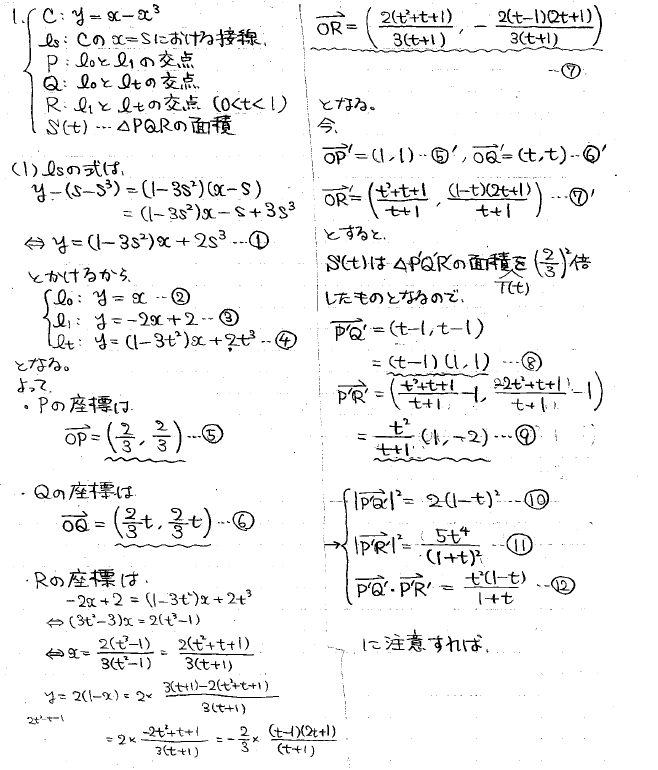 1. C: y = x - x³
ls: Cの x=s における接線.
P: l₀とl₁の交点
Q: l₀とltの交点
R: l₁とltの交点 (0<t<1)
S(t) … △PQRの面積
(1) lsの式は,
y-(s-s³) = (1-3s²)(x-s)
= (1-3s²)x - s + 3s³
⇔ y = (1-3s²)x + 2s³ …①
とかけるから
l₀: y = x …②
l₁: y = -2x+2 …③
lt: y = (1-3t²)x + 2t³ …④
となる。
よって,
・Pの座標は
OP = (2/3, 2/3) …⑤
・Qの座標は
OQ = (2/3 t, 2/3 t) …⑥
・Rの座標は.
-2x+2 = (1-3t²)x + 2t³
⇔ (3t²-3)x = 2(t³-1)
⇔ x = 2(t³-1)/3(t²-1) = 2(t²+t+1)/3(t+1)
y = 2(1-x) = 2× 3(t+1)-2(t²+t+1)/3(t+1)
2t²-t-1
= 2× -2t²+t+1/3(t+1) = -2/3 × (t-1)(2t+1)/(t+1)
OR = (2(t²+t+1)/3(t+1), - 2(t-1)(2t+1)/3(t+1))
…⑦
となる。
今,
OP' = (1,1) …⑤', OQ' = (t,t) …⑥'
OR' = (t²+t+1/t+1, (1-t)(2t+1)/t+1) …⑦'
とすると,
S(t)は △P'Q'R'の面積を (2/3)²倍
T(t)
したものとなるので,
P'Q' = (t-1, t-1)
= (t-1)(1,1) …⑧
P'R' = (t²+t+1/t+1 -1, -2t²+t+1/t+1 -1)
= t²/t+1 (1,-2) …⑨
|P'Q'|² = 2(1-t)² …⑩
→ |P'R'|² = 5t⁴/(1+t)² …⑪
P'Q'・P'R' = t²(1-t)/1+t …⑫
に注意すれば,